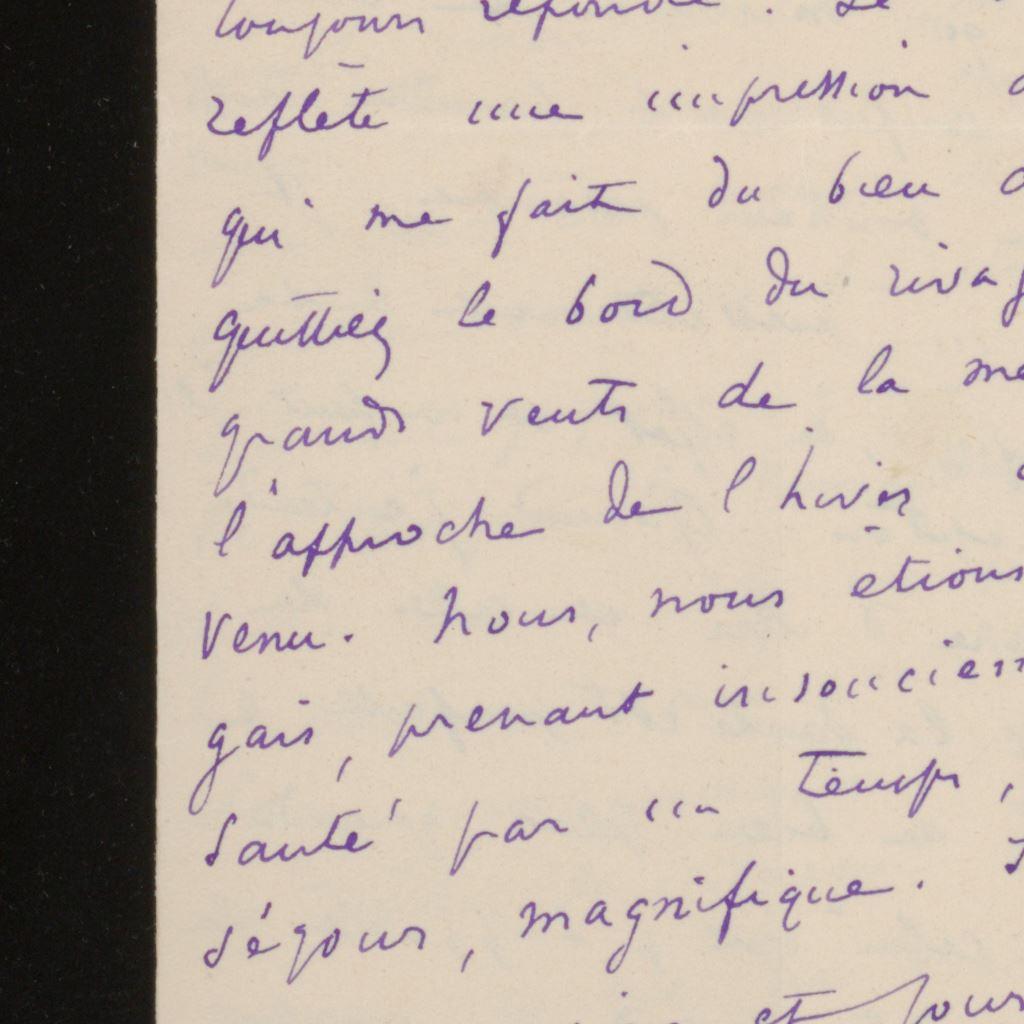 toujours répondre. Le
reflète une impression
qui me fait du bien
quittiez le bord du rivag
grands vents de la me
l'approche de l'hiver
venu. nous, nous etions
gais, prenant insoucien
santé par un temps,
séjour, magnifique.
et jour